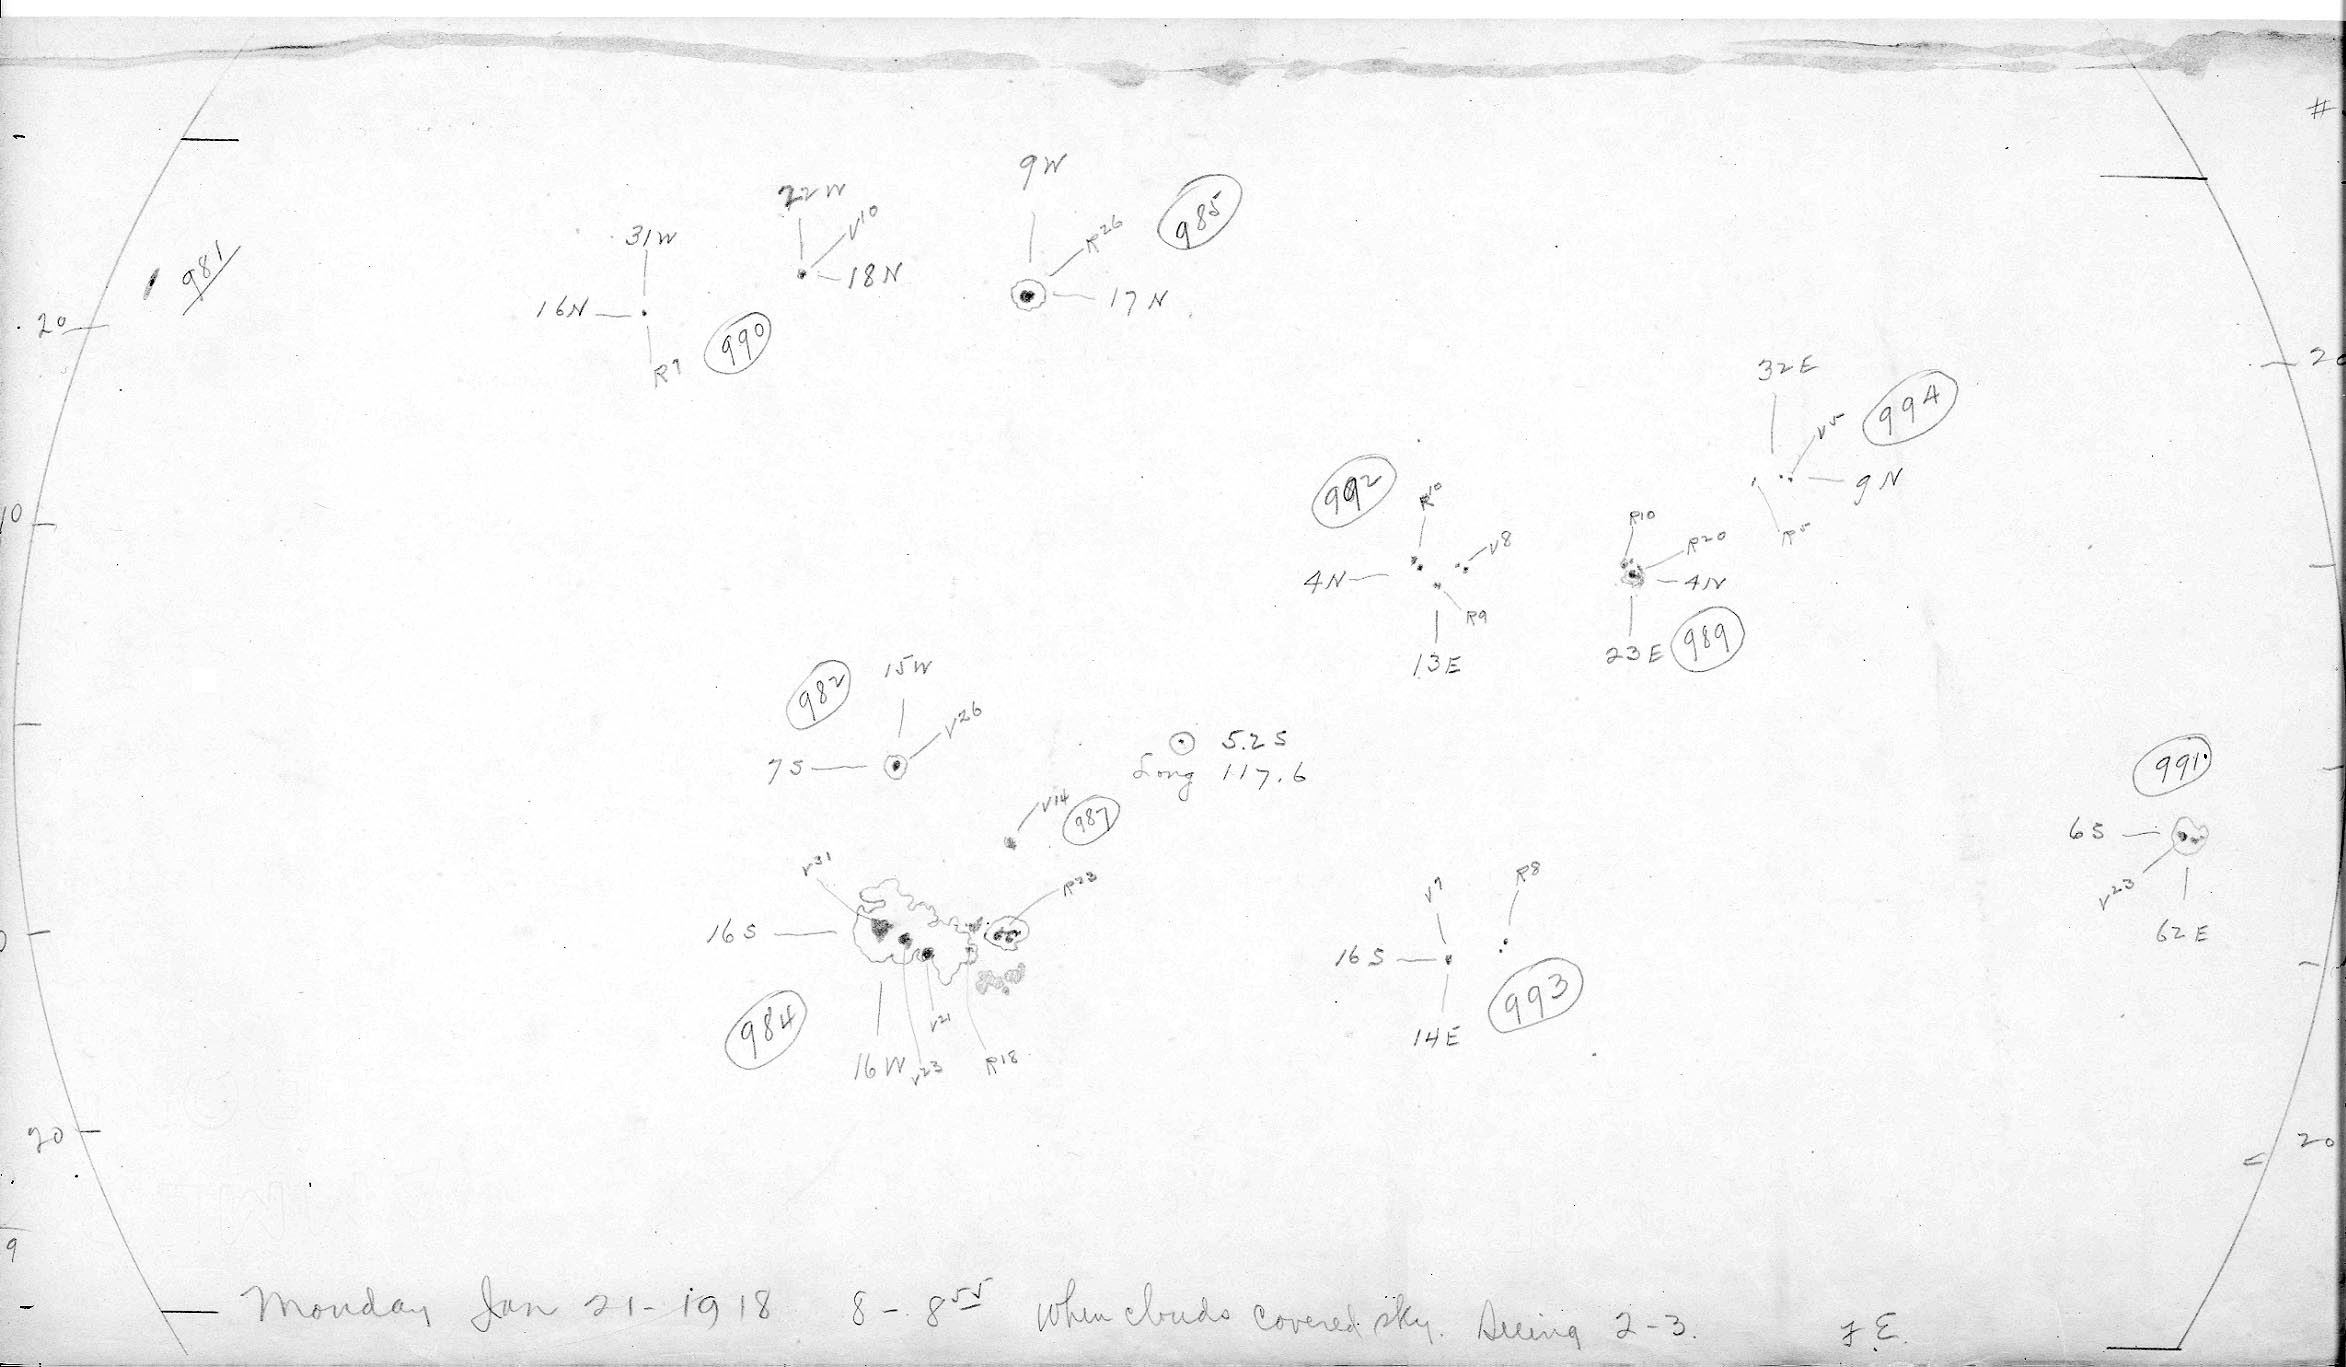 #
9W
22W
V10
R26
985
31W
981
18N
17N
16N
20
990
R7
20
32E
994
V5
992
R10
9N
10
R10
R5
V8
R20
4N
4N
R9
13E
23E
989
15W
982
V26
7S
5.2S
Long 117.6
991
V14
987
6S
V31
R23
V7
R8
V23
16S
62E
16S
993
984
V21
14E
16W
V23
R18
20
20
9
Monday Jan 21-1918 8-8 55 When clouds covered sky. Seeing 2-3. F.E.